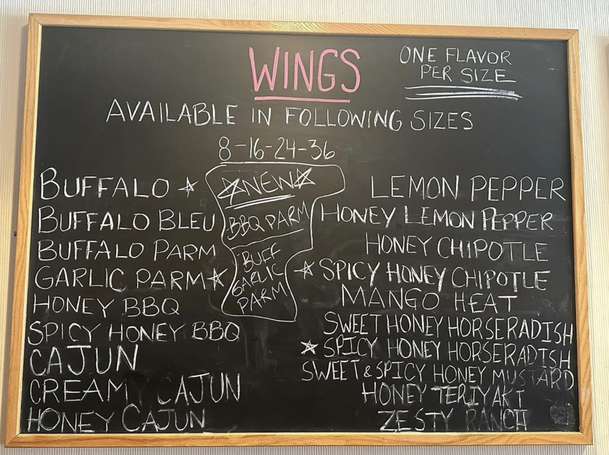 WINGS
ONE FLAVOR
PER SIZE
AVAILABLE IN FOLLOWING SIZES
8-16-24-36
BUFFALO ☆
BUFFALO BLEU
BUFFALO PARM
GARLIC PARM ☆
HONEY BBQ
SPICY HONEY BBQ
CAJUN
CREAM CAJUN
HONEY CAJUN
☆NEW☆
BBQ PARM
BUFF
GARLIC
PARM
LEMON PEPPER
HONEY LEMON PEPPER
HONEY CHIPOTLE
☆ SPICY HONEY CHIPOTLE
MANGO HEAT
SWEET HONEY HORSERADISH
☆ SPICY HONEY HORSERADISH
SWEET & SPICY HONEY MUSTARD
HONEY TERIYAKI
ZESTY RANCH